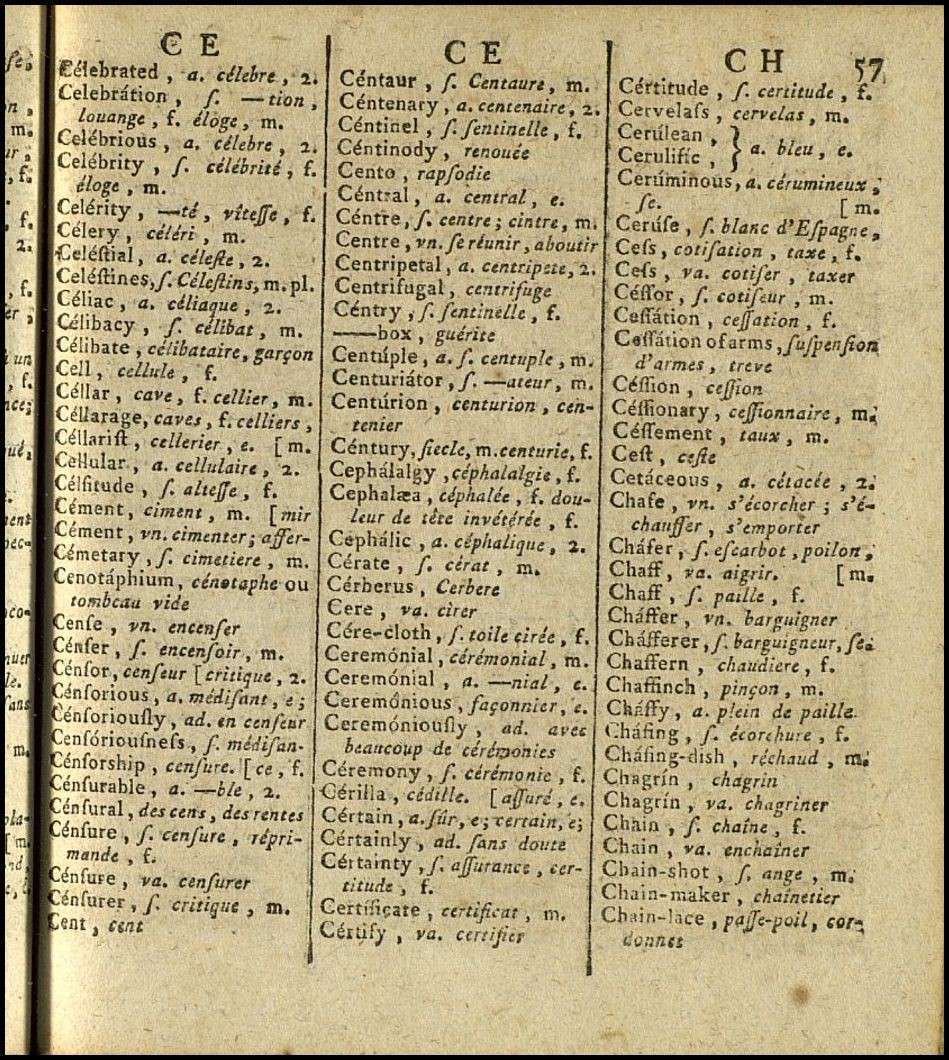 C E
Célebrated, a. célebre, 2.
Celebrátion, ſ. —tion,
louange, f. éloge, m.
Celébrious, a. célebre, 2.
Celébrity, ſ. célébrité, f.
éloge, m.
Celérity, —té, vîteſſe, f.
Célery, céléri, m.
Celéſtial, a. céleſte, 2.
Celéſtines, ſ. Céleſtins, m. pl.
Céliac, a. céliaque, 2.
Célibacy, ſ. célibat, m.
Célibate, célibataire, garçon
Cell, cellule, f.
Céllar, cave, f. cellier, m.
Céllarage, caves, f. celliers,
Céllariſt, cellerier, e. [m.
Cellular, a. cellulaire, 2.
Célſitude, ſ. alteſſe, f.
Cément, ciment, m. [mir
Cément, vn. cimenter; affer-
Cémetary, ſ. cimetiere, m.
Cenotáphium, cénotaphe ou
tombeau vide
Cenſe, vn. encenſer
Cénſer, ſ. encenſoir, m.
Cénſor, cenſeur [critique, 2.
Cénſorious, a. médiſant, e;
Cénſoriouſly, ad. en cenſeur
Cenſóriouſneſs, ſ. médiſan-
Cénſorship, cenſure. [ce, f.
Cénſurable, a. —ble, 2.
Cénſural, des cens, des rentes
Cénſure, ſ. cenſure, répri-
mande, f.
Cénſure, va. cenſurer
Cénſurer, ſ. critique, m.
Cent, cent
C E
Céntaur, ſ. Centaure, m.
Céntenary, a. centenaire, 2.
Céntinel, ſ. ſentinelle, f.
Céntinody, renouée
Cento, rapſodie
Céntral, a. central, e.
Céntre, ſ. centre; cintre, m.
Centre, vn. ſe réunir, aboutir
Centripetal, a. centripete, 2.
Centrifugal, centrifuge
Céntry, ſ. ſentinelle, f.
——box, guérite
Centúple, a. ſ. centuple, m.
Centuriátor, ſ. —ateur, m.
Centúrion, centurion, cen-
tenier
Céntury, ſiecle, m. centurie, f.
Cephálalgy, céphalalgie, f.
Cephalæa, céphalée, f. dou-
leur de tête invétérée, f.
Cephálic, a. céphalique, 2.
Cérate, ſ. cérat, m.
Cérberus, Cerbere
Cere, va. cirer
Cére-cloth, ſ. toile cirée, f.
Ceremónial, cérémonial, m.
Ceremónial, a. —nial, e.
Ceremónious, façonnier, e.
Ceremóniouſly, ad. avec
beaucoup de cérémonies
Céremony, ſ. cérémonie, f.
Cérilla, cédille. [aſſuré, e.
Cértain, a. ſûr, e; certain, e;
Cértainly, ad. ſans doute
Cértainty, ſ. aſſurance, cer-
titude, f.
Certificate, certificat, m.
Cértify, va. certifier
C H 57
Cértitude, ſ. certitude, f.
Cervelaſs, cervelas, m.
Cerúlean , } a. bleu, e.
Cerulific ,
Cerúminous, a. cérumineux,
ſe. [m.
Ceruſe, ſ. blanc d'Eſpagne,
Ceſs, cotiſation, taxe, f.
Ceſs, va. cotiſer, taxer
Céſſor, ſ. cotiſeur, m.
Ceſſátion, ceſſation, f.
Ceſſátion of arms, ſuſpenſion
d'armes, treve
Céſſion, ceſſion
Céſſionary, ceſſionnaire, m.
Céſſement, taux, m.
Ceſt, ceſte
Cetáceous, a. cétacée, 2.
Chafe, vn. s'écorcher; s'é-
chauffer, s'emporter
Cháfer, ſ. eſcarbot, poilon,
Chaff, va. aigrir. [m.
Chaff, ſ. paille, f.
Cháffer, vn. barguigner
Cháfferer, ſ. barguigneur, ſe.
Chaffern, chaudiere, f.
Chaffinch, pinçon, m.
Cháffy, a. plein de paille.
Cháfing, ſ. écorchure, f.
Cháfing-dish, réchaud, m.
Chagrín, chagrin
Chagrín, va. chagriner
Chain, ſ. chaîne, f.
Chain, va. enchaîner
Chain-shot, ſ. ange, m.
Chain-maker, chaînetier
Chain-lace, paſſe-poil, cor-
donnet